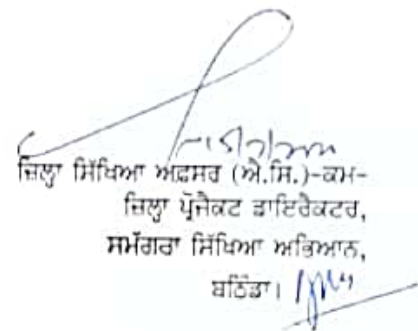 ਜ਼ਿਲ੍ਹਾ ਸਿੱਖਿਆ ਅਫ਼ਸਰ (ਐ.ਸਿ.)-ਕਮ-
ਜ਼ਿਲ੍ਹਾ ਪ੍ਰੋਜੈਕਟ ਡਾਇਰੈਕਟਰ,
ਸਮੱਗਰਾ ਸਿੱਖਿਆ ਅਭਿਆਨ,
ਬਠਿੰਡਾ।